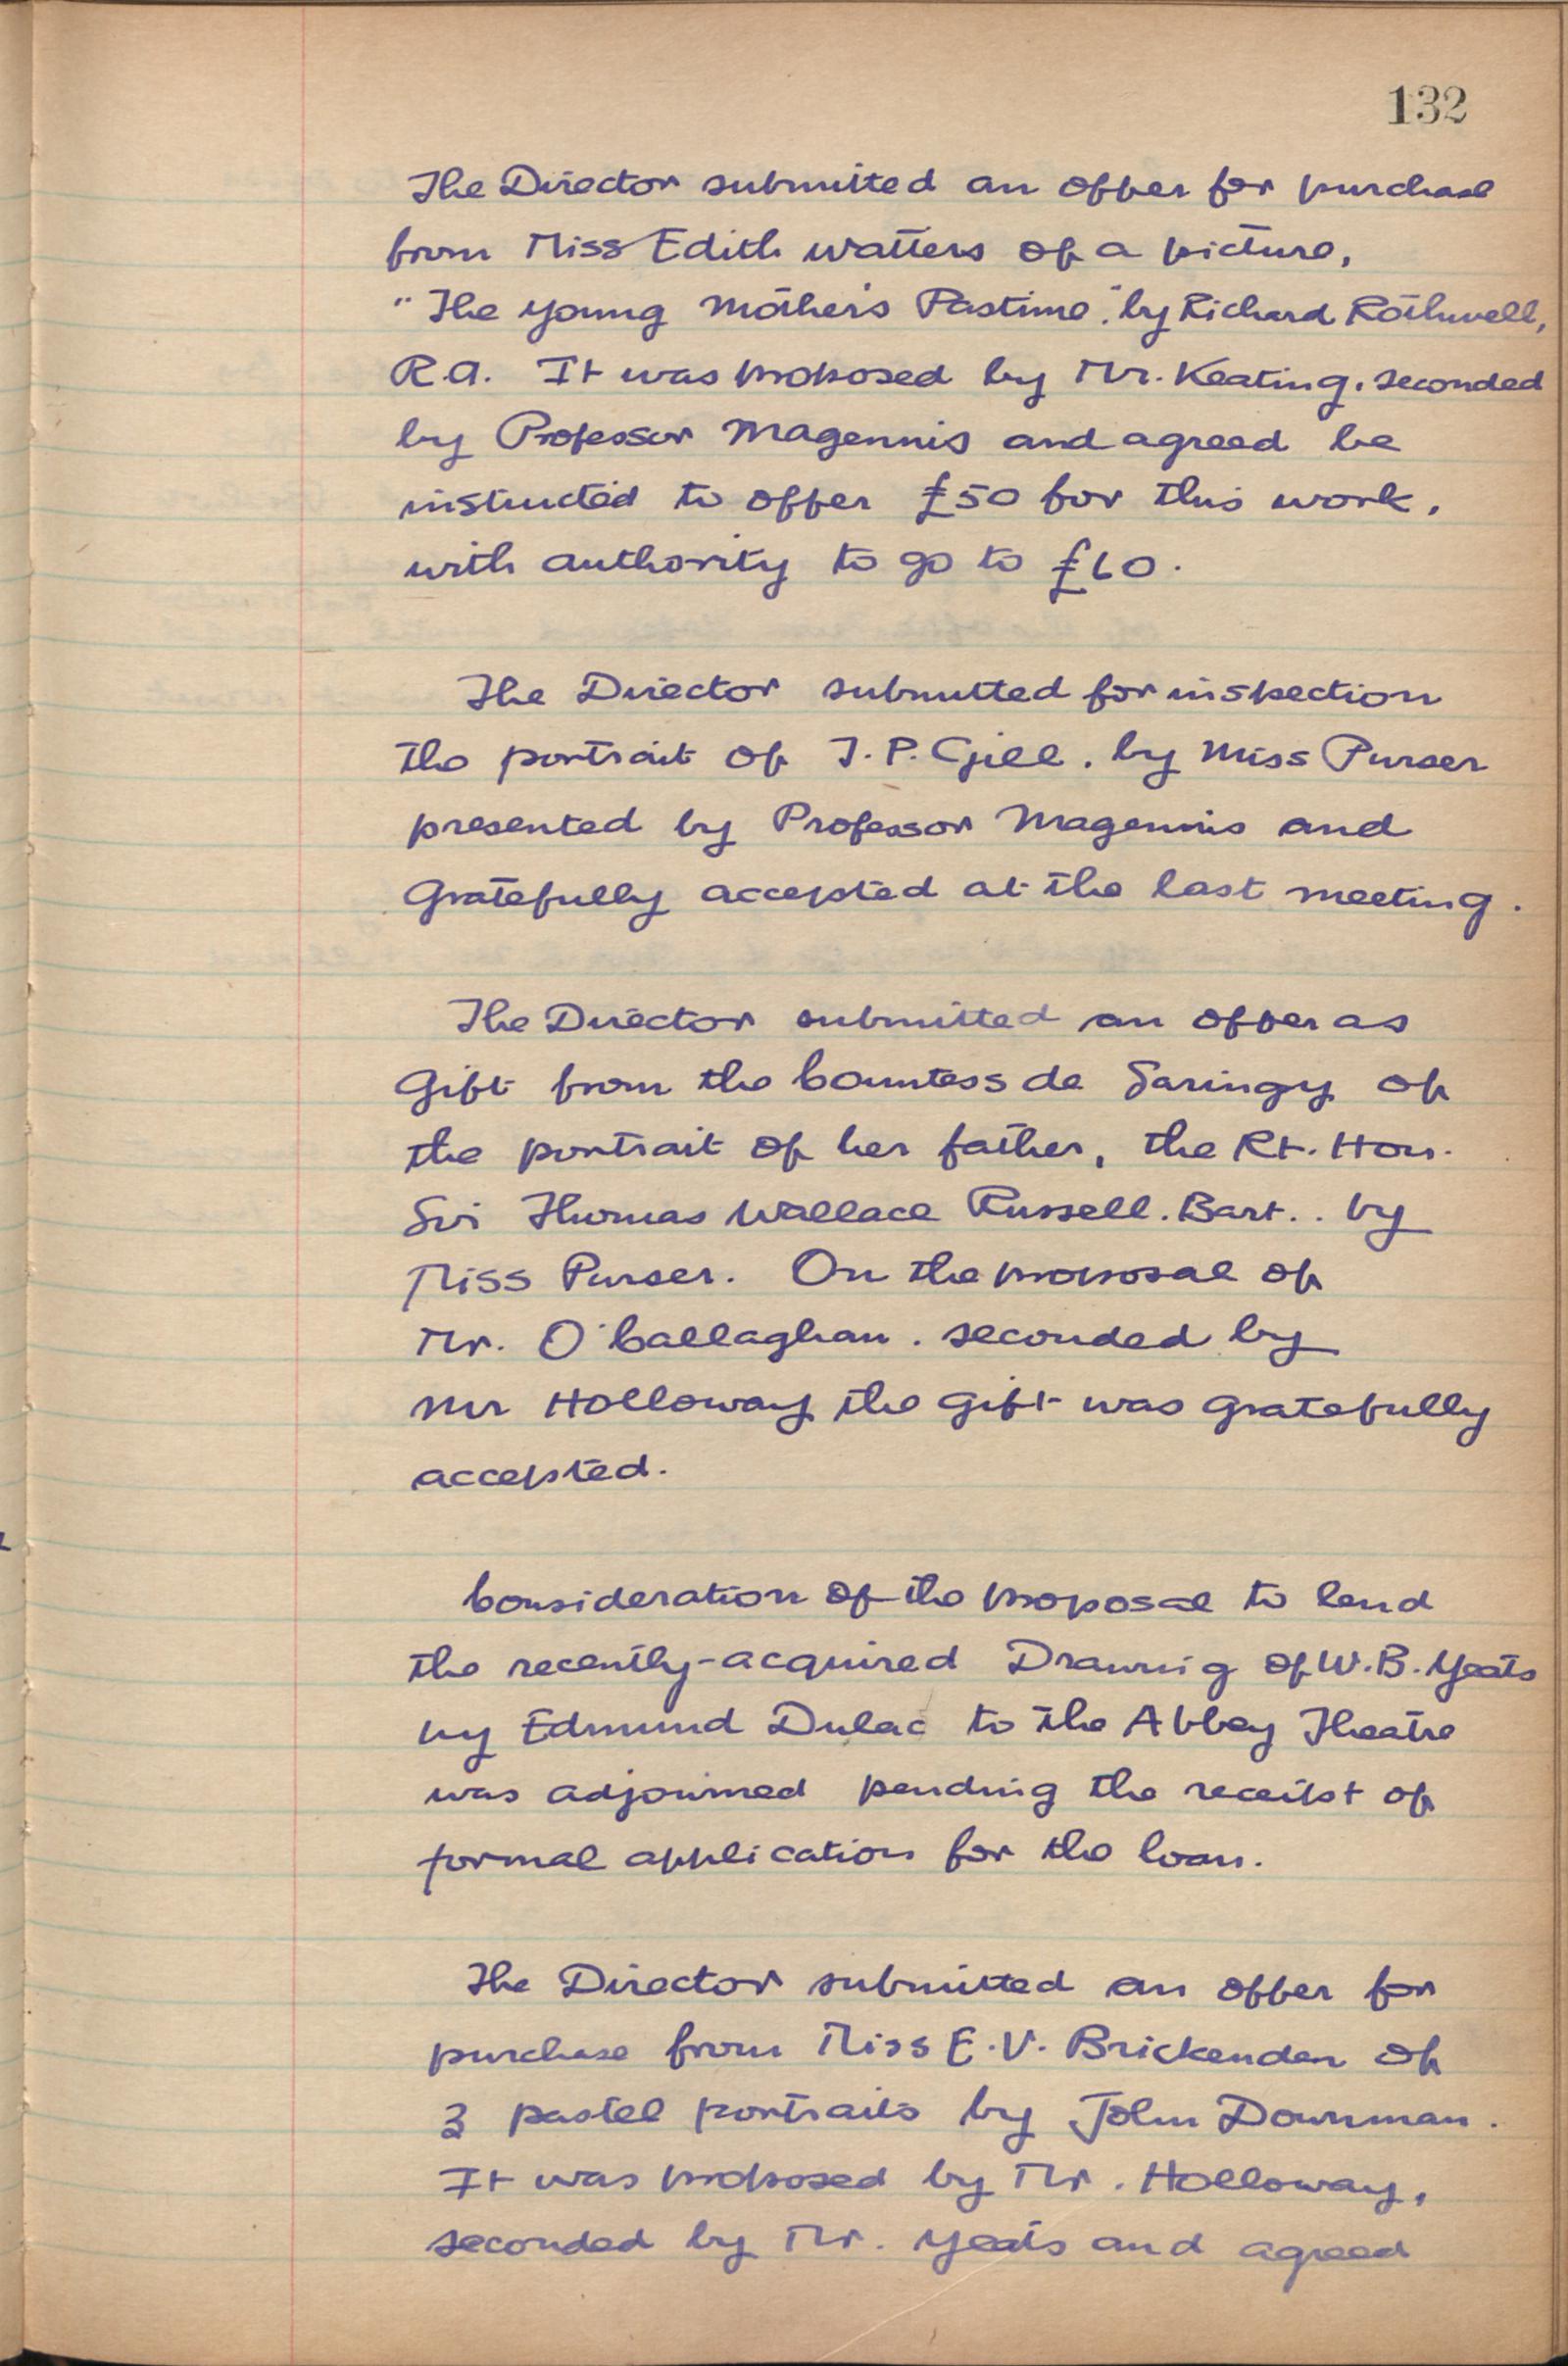 132
The Director submitted an offer for purchase
from Miss Edith Watters of a picture,
"The Young Mother's Pastime" by Richard Rothwell,
R.A. It was proposed by Mr. Keating, seconded
by Professor Magennis and agreed be
instructed to offer £50 for this work,
with authority to go to £60.
The Director submitted for inspection
the portrait of T. P. Gill, by Miss Purser
presented by Professor Magennis and
Gratefully accepted at the last meeting.
The Director submitted an offer as
Gift from the Countess de Saringy of
the portrait of her father, the Rt. Hon.
Sir Thomas Wallace Russell. Bart.. by
Miss Purser. On the proposal of
Mr. O'Callaghan. seconded by
Mr Holloway the Gift was gratefully
accepted.
Consideration of the proposal to lend
the recently-acquired Drawing of W.B. Yeats
by Edmund Dulac to the Abbey Theatre
was adjourned pending the receipt of
formal application for the loan.
The Director submitted an offer for
purchase from Miss E.V. Brickenden of
3 pastel portraits by John Downman.
It was proposed by Mr. Holloway,
seconded by Mr. Yeats and agreed